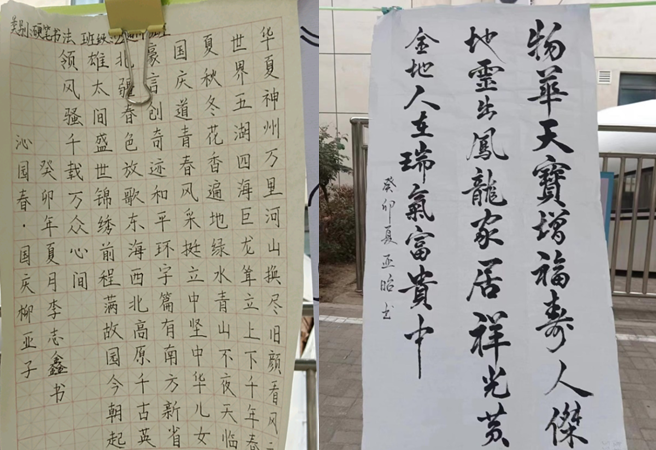 类别:硬笔书法 班级
华夏神州万里河山换尽旧颜看风
世界五湖四海巨龙耸立上下千年春
夏秋冬花香遍地绿水青山不夜天临
国庆道青春风采挺立中坚中华儿女
豪言创奇迹和平环字篇有南方新省
北疆春色放歌东海西北高原千古英
雄太间盛世锦绣前程满故国今朝起
领风骚千载万众心间
癸卯年夏月李志鑫书
沁国春·国庆柳亚子
物華天寶增福寿人傑
地靈出鳳龍家居祥光黄
金地人在瑞氣富貴中
癸卯夏亚昭书